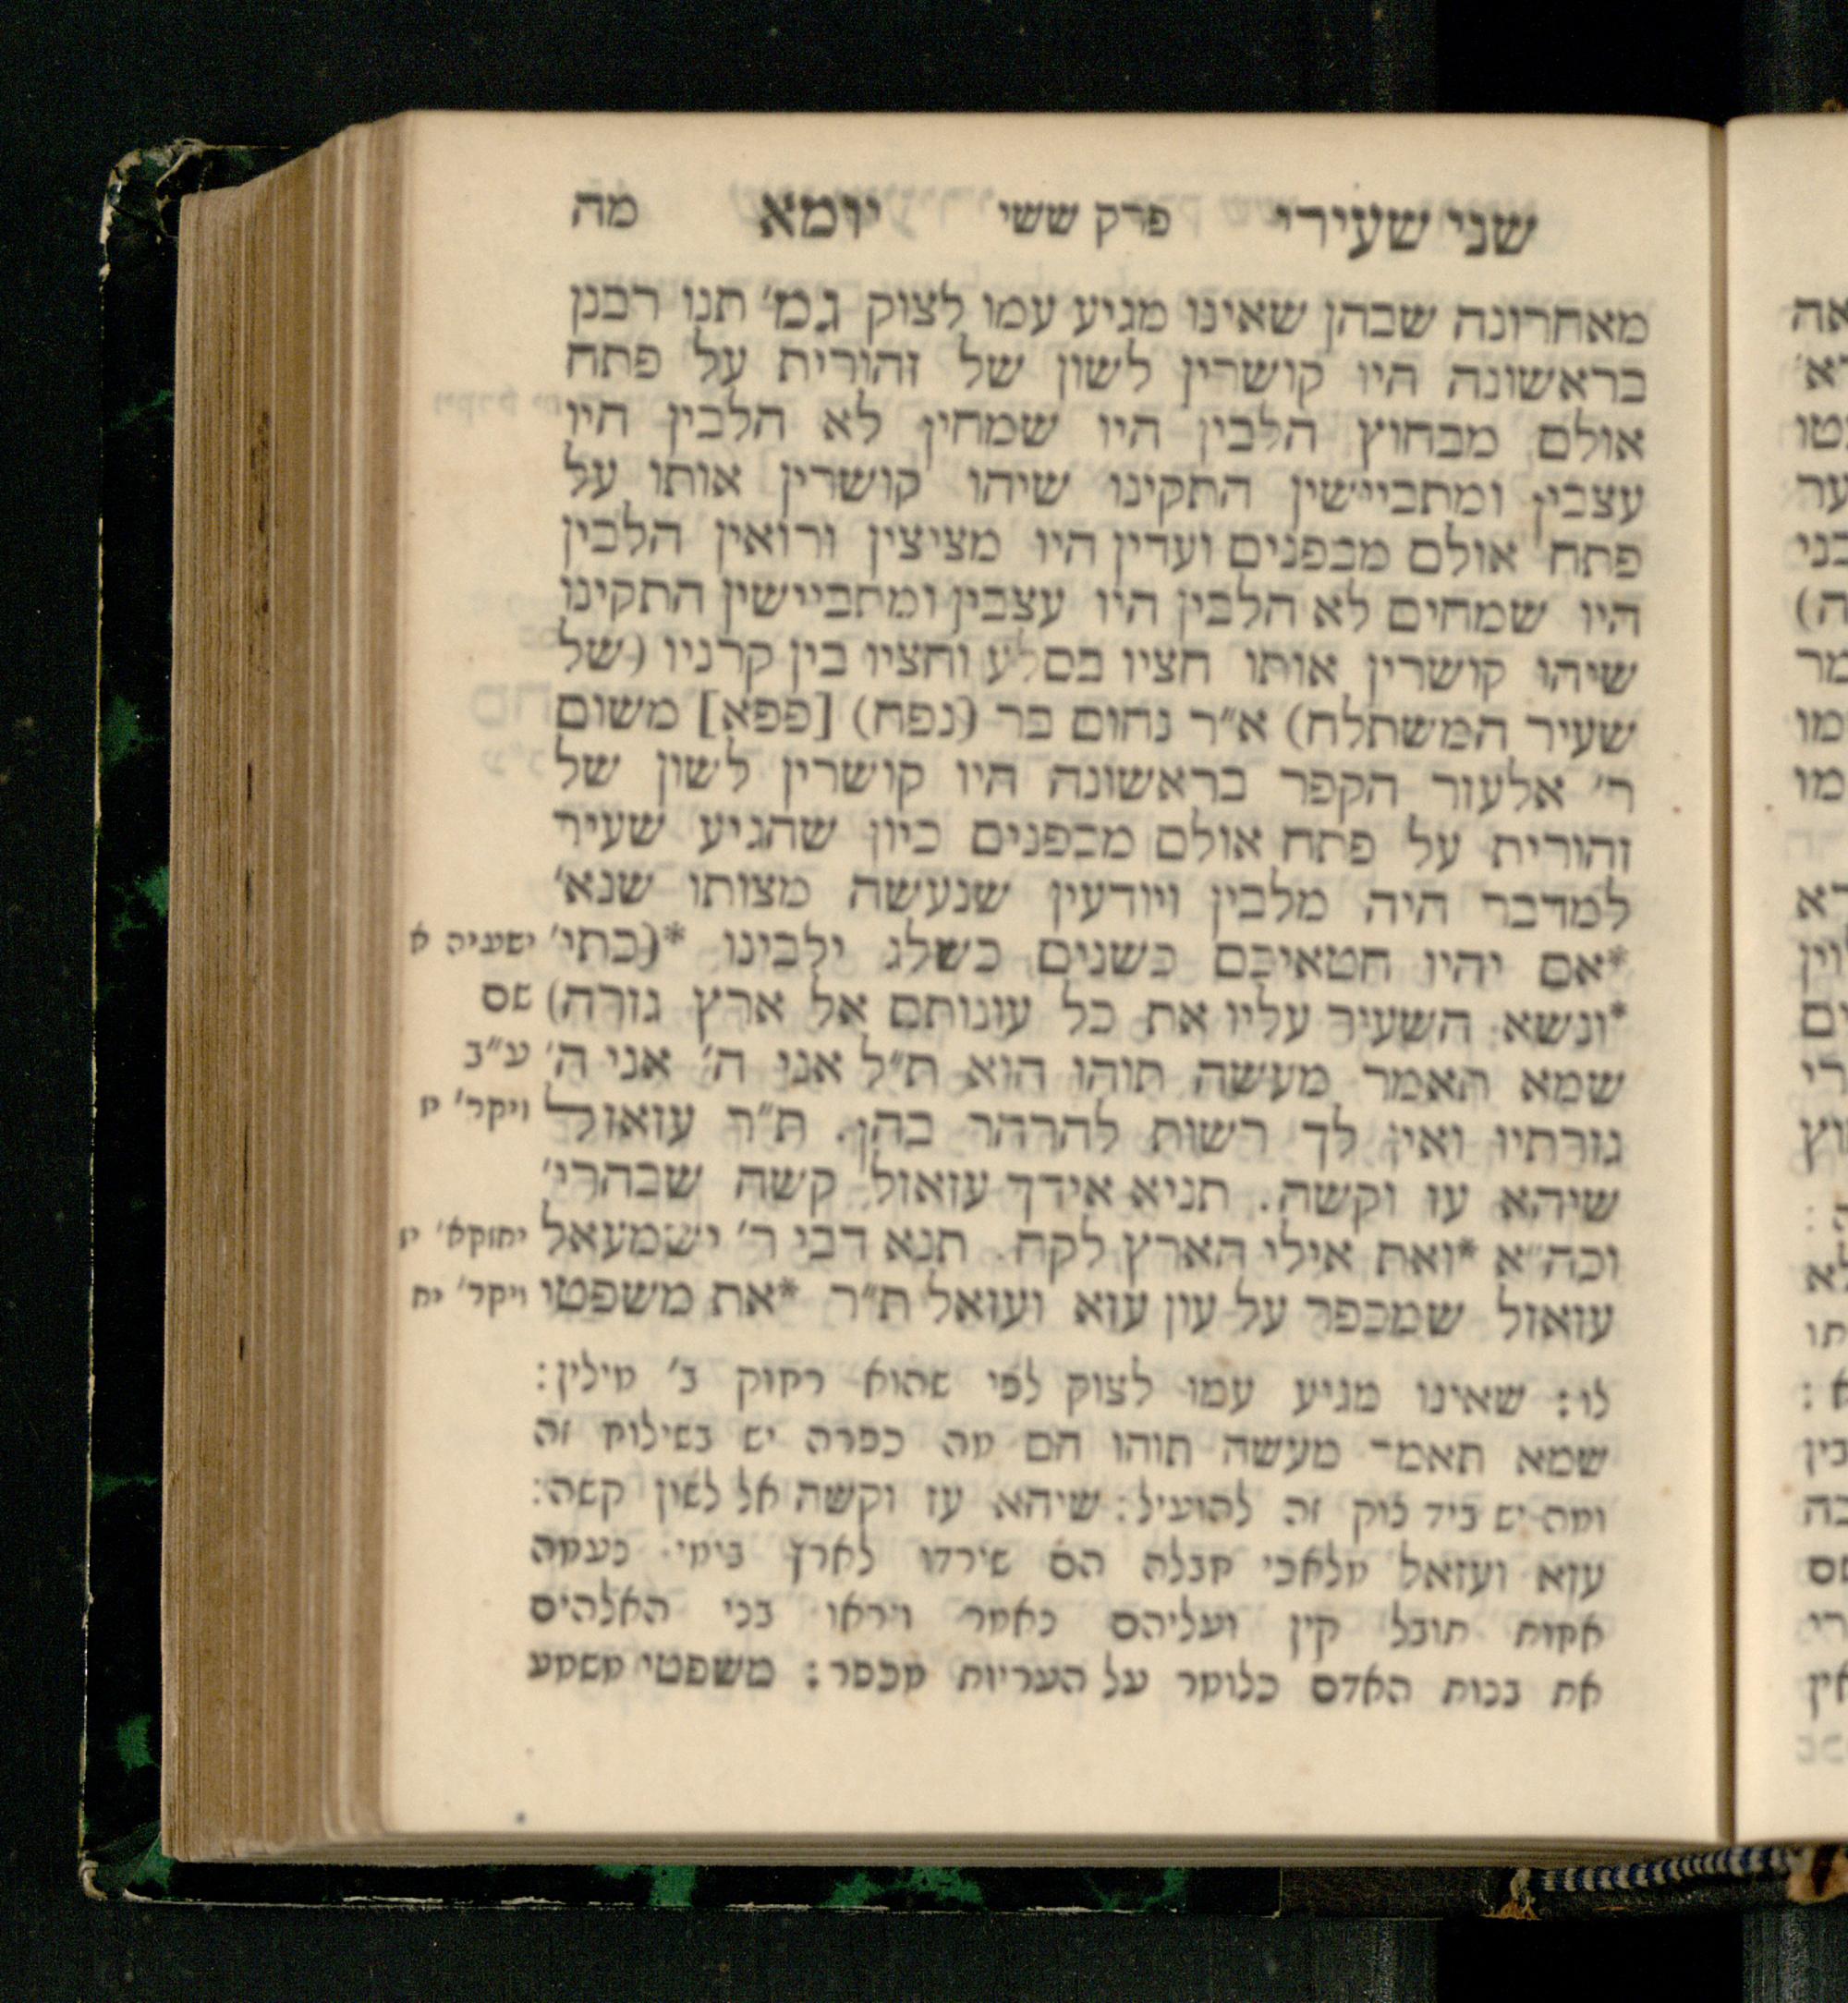 שני שעירי פרק ששי יומא מה
מאחרונה שבהן שאינו מגיע עמו לצוק גמ׳ תנו רבנן
בראשונה היו קושרין לשון של זהורית על פתח
אולם מבחוץ הלבין היו שמחין לא הלבין היו
עצבין ומתביישין התקינו שיהו קושרין אותו על
פתח אולם מבפנים ועדין היו מציצין ורואין הלבין
היו שמחים לא הלבין היו עצבין ומתביישין התקינו
שיהו קושרין אותו חציו בסלע וחציו בין קרניו (של
שעיר המשתלח) א״ר נחום בר (נפח) [פפא] משום
ר׳ אלעזר הקפר בראשונה היו קושרין לשון של
זהורית על פתח אולם מבפנים כיון שהגיע שעיר
למדבר היה מלבין ויודעין שנעשה מצותו שנא׳
*אם יהיו חטאיכם כשנים כשלג ילבינו *(כתי׳ ישעיה א
*ונשא השעיר עליו את כל עונותם אל ארץ גזרה) שם
שמא תאמר מעשה תוהו הוא ת״ל אני ה׳ אני ה׳ ע״ב
גזרתיו ואין לך רשות להרהר בהן. ת״ר עזאזל ויקר׳ יו
שיהא עז וקשה. תניא אידך עזאזל קשה שבהרי׳
וכה״א *ואת אילי הארץ לקח. תנא דבי ר׳ ישמעאל יחזקא׳ יז
עזאזל שמכפר על עון עוזא ועזאל ת״ר *את משפטי ויקר׳ יח
לו: שאינו מגיע עמו לצוק לפי שהוא רחוק ב׳ מילין:
שמא תאמר מעשה תוהו הם מה כפרה יש בשילוח זה
ומה יש ביד לוק זה להועיל: שיהא עז וקשה אל לשון קשה:
עזא ועזאל מלאכי חבלה הם שירדו לארץ בימי נעמה
אחות תובל קין ועליהם נאמר ויראו בני האלהים
את בנות האדם כלומר על העריות מכפר: משפטי משמע